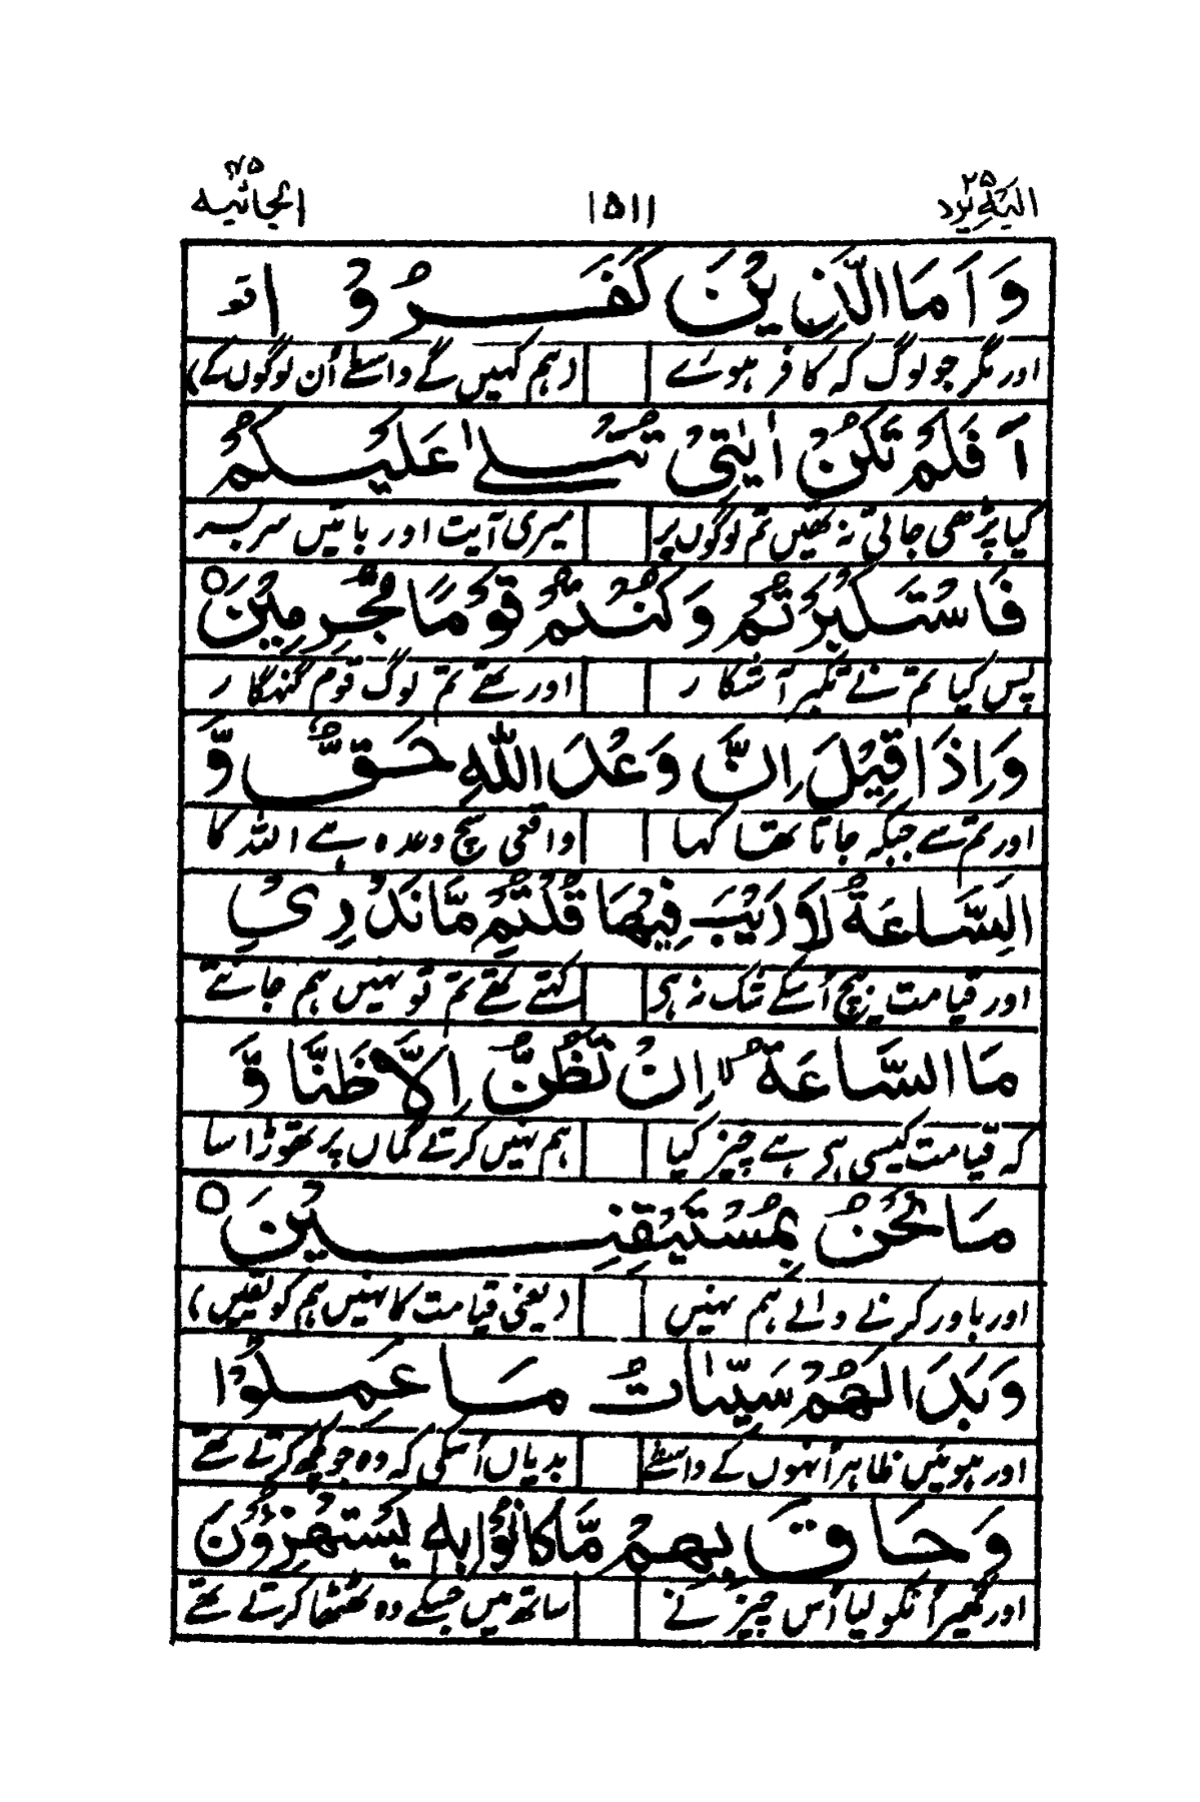 الیہ یرد ۲۵ ۱۵۱۱ الجاثیہ ۴۵
وَاَمَّا الَّذِيْنَ كَفَرُوْا قف
اور مگر جو لوگ کہ کافر ہوے (ہم کہیں گے واسطے اُن لوگوں کے)
اَفَلَمْ تَكُنْ اٰيٰتِيْ تُتْلٰى عَلَيْكُمْ
کیا پڑھی جاتی نہ تھیں تم لوگوں پر میری آیت اور باتیں سربسر
فَاسْتَكْبَرْتُمْ وَكُنْتُمْ قَوْمًا مُّجْرِمِيْنَ ○
پس کیا تم نے تکبر آشکار اور تھے تم لوگ قوم گنہگار
وَاِذَا قِيْلَ اِنَّ وَعْدَ اللّٰهِ حَقٌّ وَّ
اور تم سے جبکہ جاتا تھا کہا واقعی سچ وعدہ ہے اللہ کا
السَّاعَةُ لَا رَيْبَ فِيْهَا قُلْتُمْ مَّا نَدْرِيْ
اور قیامت بیچ اُسکے شک نہ ہی کہتے تھے تم تو نہیں ہم جانتے
مَا السَّاعَةُ ۙ اِنْ نَّظُنُّ اِلَّا ظَنًّا وَّ
کہ قیامت کیسی ہی ہے چیز کیا ہم نہیں کرتے گماں پر تھوڑا سا
مَا نَحْنُ بِمُسْتَيْقِنِيْنَ ○
اور باور کرنے والے ہم نہیں (یعنی قیامت کا نہیں ہم کو یقیں)
وَبَدَا لَهُمْ سَيِّاٰتُ مَا عَمِلُوْا
اور ہوئیں ظاہر اُنہوں کے واسطے بدیاں اُسکی کہ وہ جو کچھ کرتے تھے
وَحَاقَ بِهِمْ مَّا كَانُوْا بِهٖ يَسْتَهْزِءُوْنَ
اور گھیر اُنکو لیا اُس چیز نے ساتھ میں جسکے وہ ٹھٹھا کرتے تھے